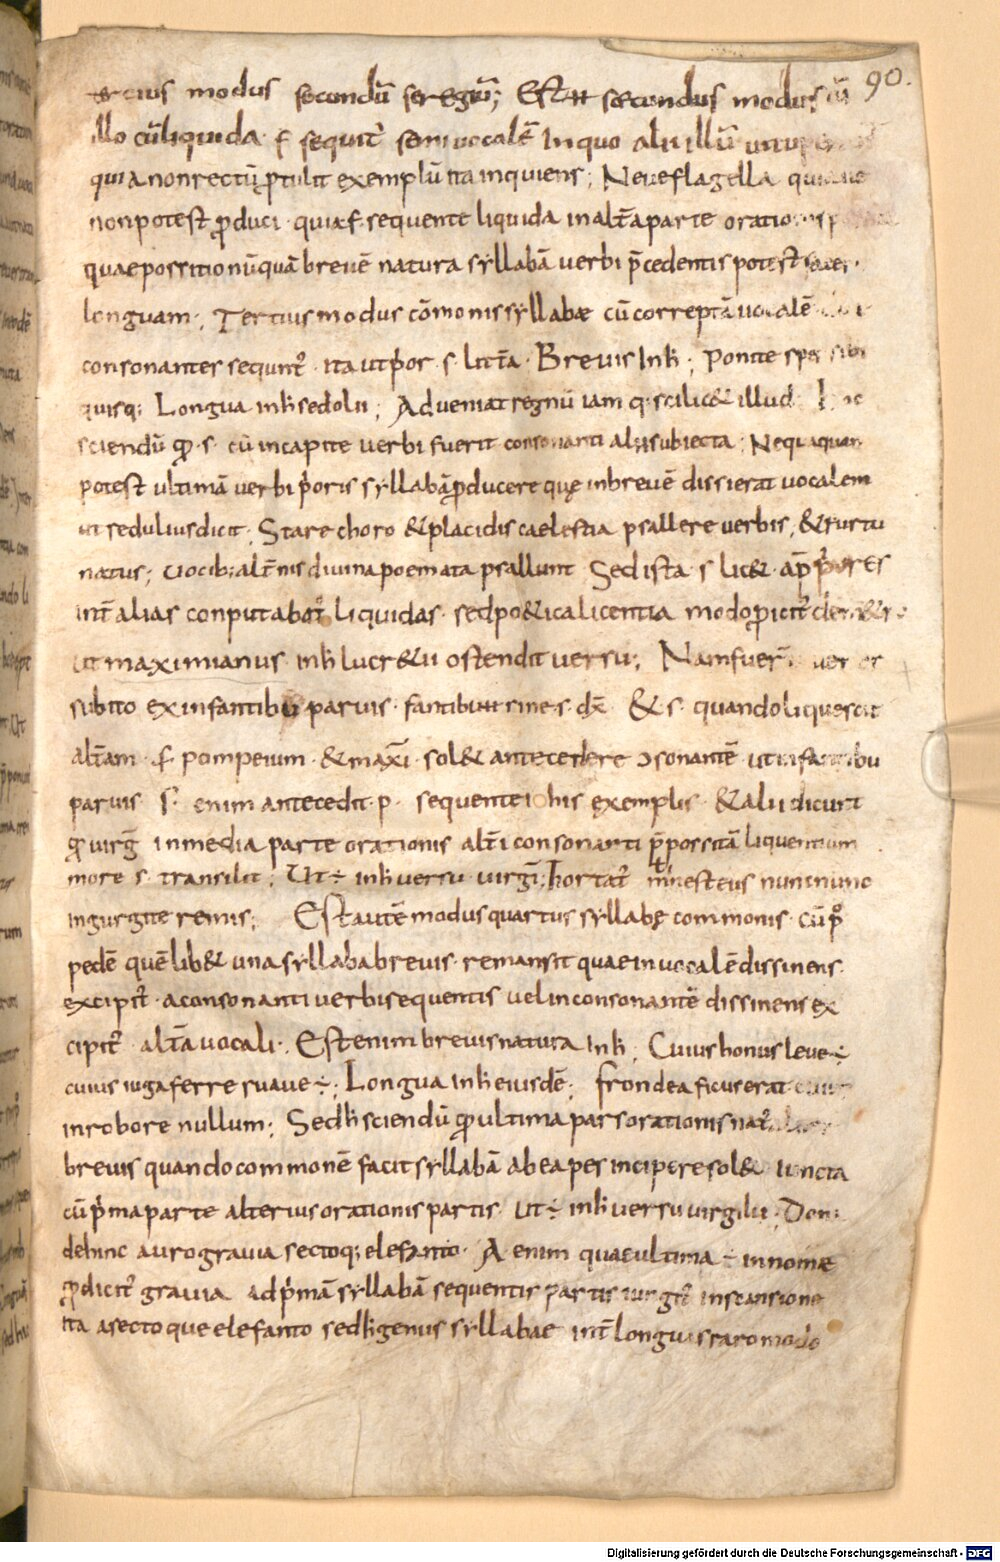 90.
modus secundū seregiū; Est secundus modus
illo cū liquida · f · sequit̄ semivocalē In quo alii illū
quia non rectū ꝓtulit exemplū ita inquiens; Neve flagella
non potest ꝓduci · quia · f · sequente liquida in alt̄a parte
quae possitio nūquā brevē natura syllabā verbi p̄cedentis potest
longuam; Tertius modus cōmonis syllabae cū correptā vocalē
consonantes sequnt̄ · ita ut prior · s · litt̄a · Brevis In ħ; Ponite spes sibi
quisq; Longua in ħ sedolii; Adveniat regnū iam q; scilic& illud
sciendū qđ · s · cū in capite verbi fuerit consonanti alii subiecta · Nequaquam
potest ultimā verbi prioris syllabā ꝓducere quę in brevē dissierat vocalem
ut sedulius dicit · Stare choro & placidis caelestia psallere verbis, & rursu
natus; vocib; alt̄nis divina poemata psallunt Sed ista · s · lic& · ap̄ priores
int̄ alias conputabat̄ liquidas · sed po&ica licentia modo ꝓicit̄
ut maximianus in ħ lucr&ii ostendit versu; Nam fuer̄
subito ex infantibus parvis · fantibu sine · s · dx̄ & · s · quando liquescit
alt̄am · f · pompeium · & maxī · sol& antecedere ɔsonantē · ut infantibu
parvis · s · enim antecedit · p · sequente his exemplis · & alii dicunt
qđ virḡ in media parte orationis alt̄i consonanti p̄possitā liquentium
more · s · transilit; Ut ÷ in ħ versu virgī; hortat̄ mnesteus nunc nunc
ingurgite remis; Est autē modus quartus syllabę commonis · cū p̊
pedē quē lib& una syllaba brevis · remansit quae in vocalē dissinens
excipit̄ · a consonanti verbi sequentis vel in consonantē dissinens ex
cipit̄ · alt̄a vocali · Est enim brevis natura In ħ · Cuius honus leve ÷
cuius iuga ferre suave ÷; Longua in ħ eiusdē; frondea ficus erat
in robore nullum; Sed ħ sciendū qđ ultima pars orationis
brevis quando commonē facit syllabā ab ea pes incipere sol& iuncta
cū p̄ma parte alterius orationis partis · ut ÷ in ħ versu virgilii · Dona
dehinc auro gravia sectoq; elefanto · A enim quae ultima ÷ in nomine
qđ dicit̄ gravia ad p̄mā syllabā sequentis partis iungit̄ in scansione
ita asectoque elefanto sed ħ genus syllabae int̄ longuas raro modo
Digitalisierung gefördert durch die Deutsche Forschungsgemeinschaft - DFG